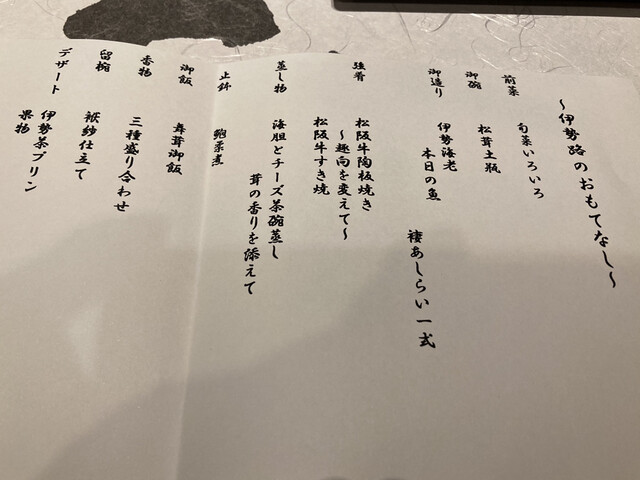 ～伊勢路のおもてなし～
前菜
旬菜いろいろ
御碗
松茸土瓶
御造り
伊勢海老
本日の魚
褄あしらい一式
強肴
松阪牛陶板焼き
～趣向を変えて～
松阪牛すき焼
蒸し物
海胆とチーズ茶碗蒸し
茸の香りを添えて
止鉢
鮑柔煮
御飯
舞茸御飯
香物
三種盛り合わせ
留椀
袱紗仕立て
デザート
伊勢茶プリン
果物